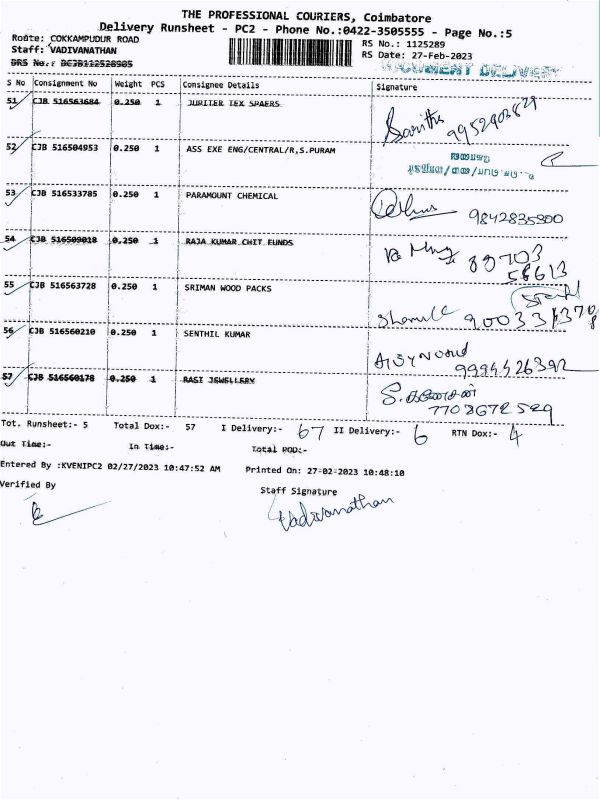 THE PROFESSIONAL COURIERS, Coimbatore
Delivery Runsheet - PC2 - Phone No.:0422-3505555 - Page No.:5
Route: COKKAMPUDUR ROAD
RS No.: 1125289
Staff: VADIVANATHAN
RS Date: 27-Feb-2023
DRS No.: DCJB112528985
DOCUMENT DELIVERY
S No Consignment No Weight PCS Consignee Details Signature
51 CJB 516563684 0.250 1 JUPITER TEX SPAERS
9952903829
52 CJB 516504953 0.250 1 ASS EXE ENG/CENTRAL/R,S.PURAM
53 CJB 516533785 0.250 1 PARAMOUNT CHEMICAL
9842835300
54 CJB 516509018 0.250 1 RAJA KUMAR CHIT FUNDS
89703
56613
55 CJB 516563728 0.250 1 SRIMAN WOOD PACKS
56 CJB 516560210 0.250 1 SENTHIL KUMAR
9994526392
57 CJB 516560178 0.250 1 RASI JEWELLERY
7708672529
Tot. Runsheet:- 5 Total Dox:- 57 I Delivery:- 67 II Delivery:- 6 RTN Dox:- 4
Out Time:- In Time:- Total POD:-
Entered By :KVENIPC2 02/27/2023 10:47:52 AM Printed On: 27-02-2023 10:48:10
Verified By
Staff Signature
Vadivanathan